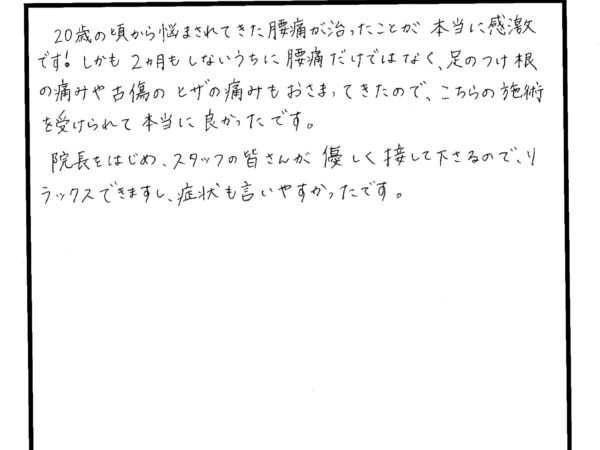 20歳の頃から悩まされてきた腰痛が治ったことが 本当に感激
です! しかも 2ヵ月もしないうちに腰痛だけではなく、足のつけ根
の痛みや古傷の ヒザの痛みもおさまってきたので、こちらの施術
を受けられて 本当に 良かったです。
院長をはじめ、スタッフの皆さんが 優しく 接して下さるので、リ
ラックスできますし、症状も言いやすかったです。